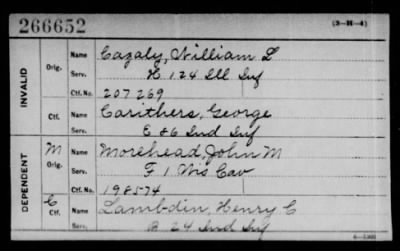 266652 (3-H-4)
INVALID Orig. Name Cazaly, William L
Serv. H 124 Ill Inf
Ctf. No. 207269
Ctf. Name Carithers, George
Serv. E 86 Ind Inf
DEPENDENT M Orig. Name Morehead, John M
Serv. F 1 Wis Cav
Ctf. No. 198574
C Ctf. Name Lambdin, Henry C
Serv. B 24 Ind Inf